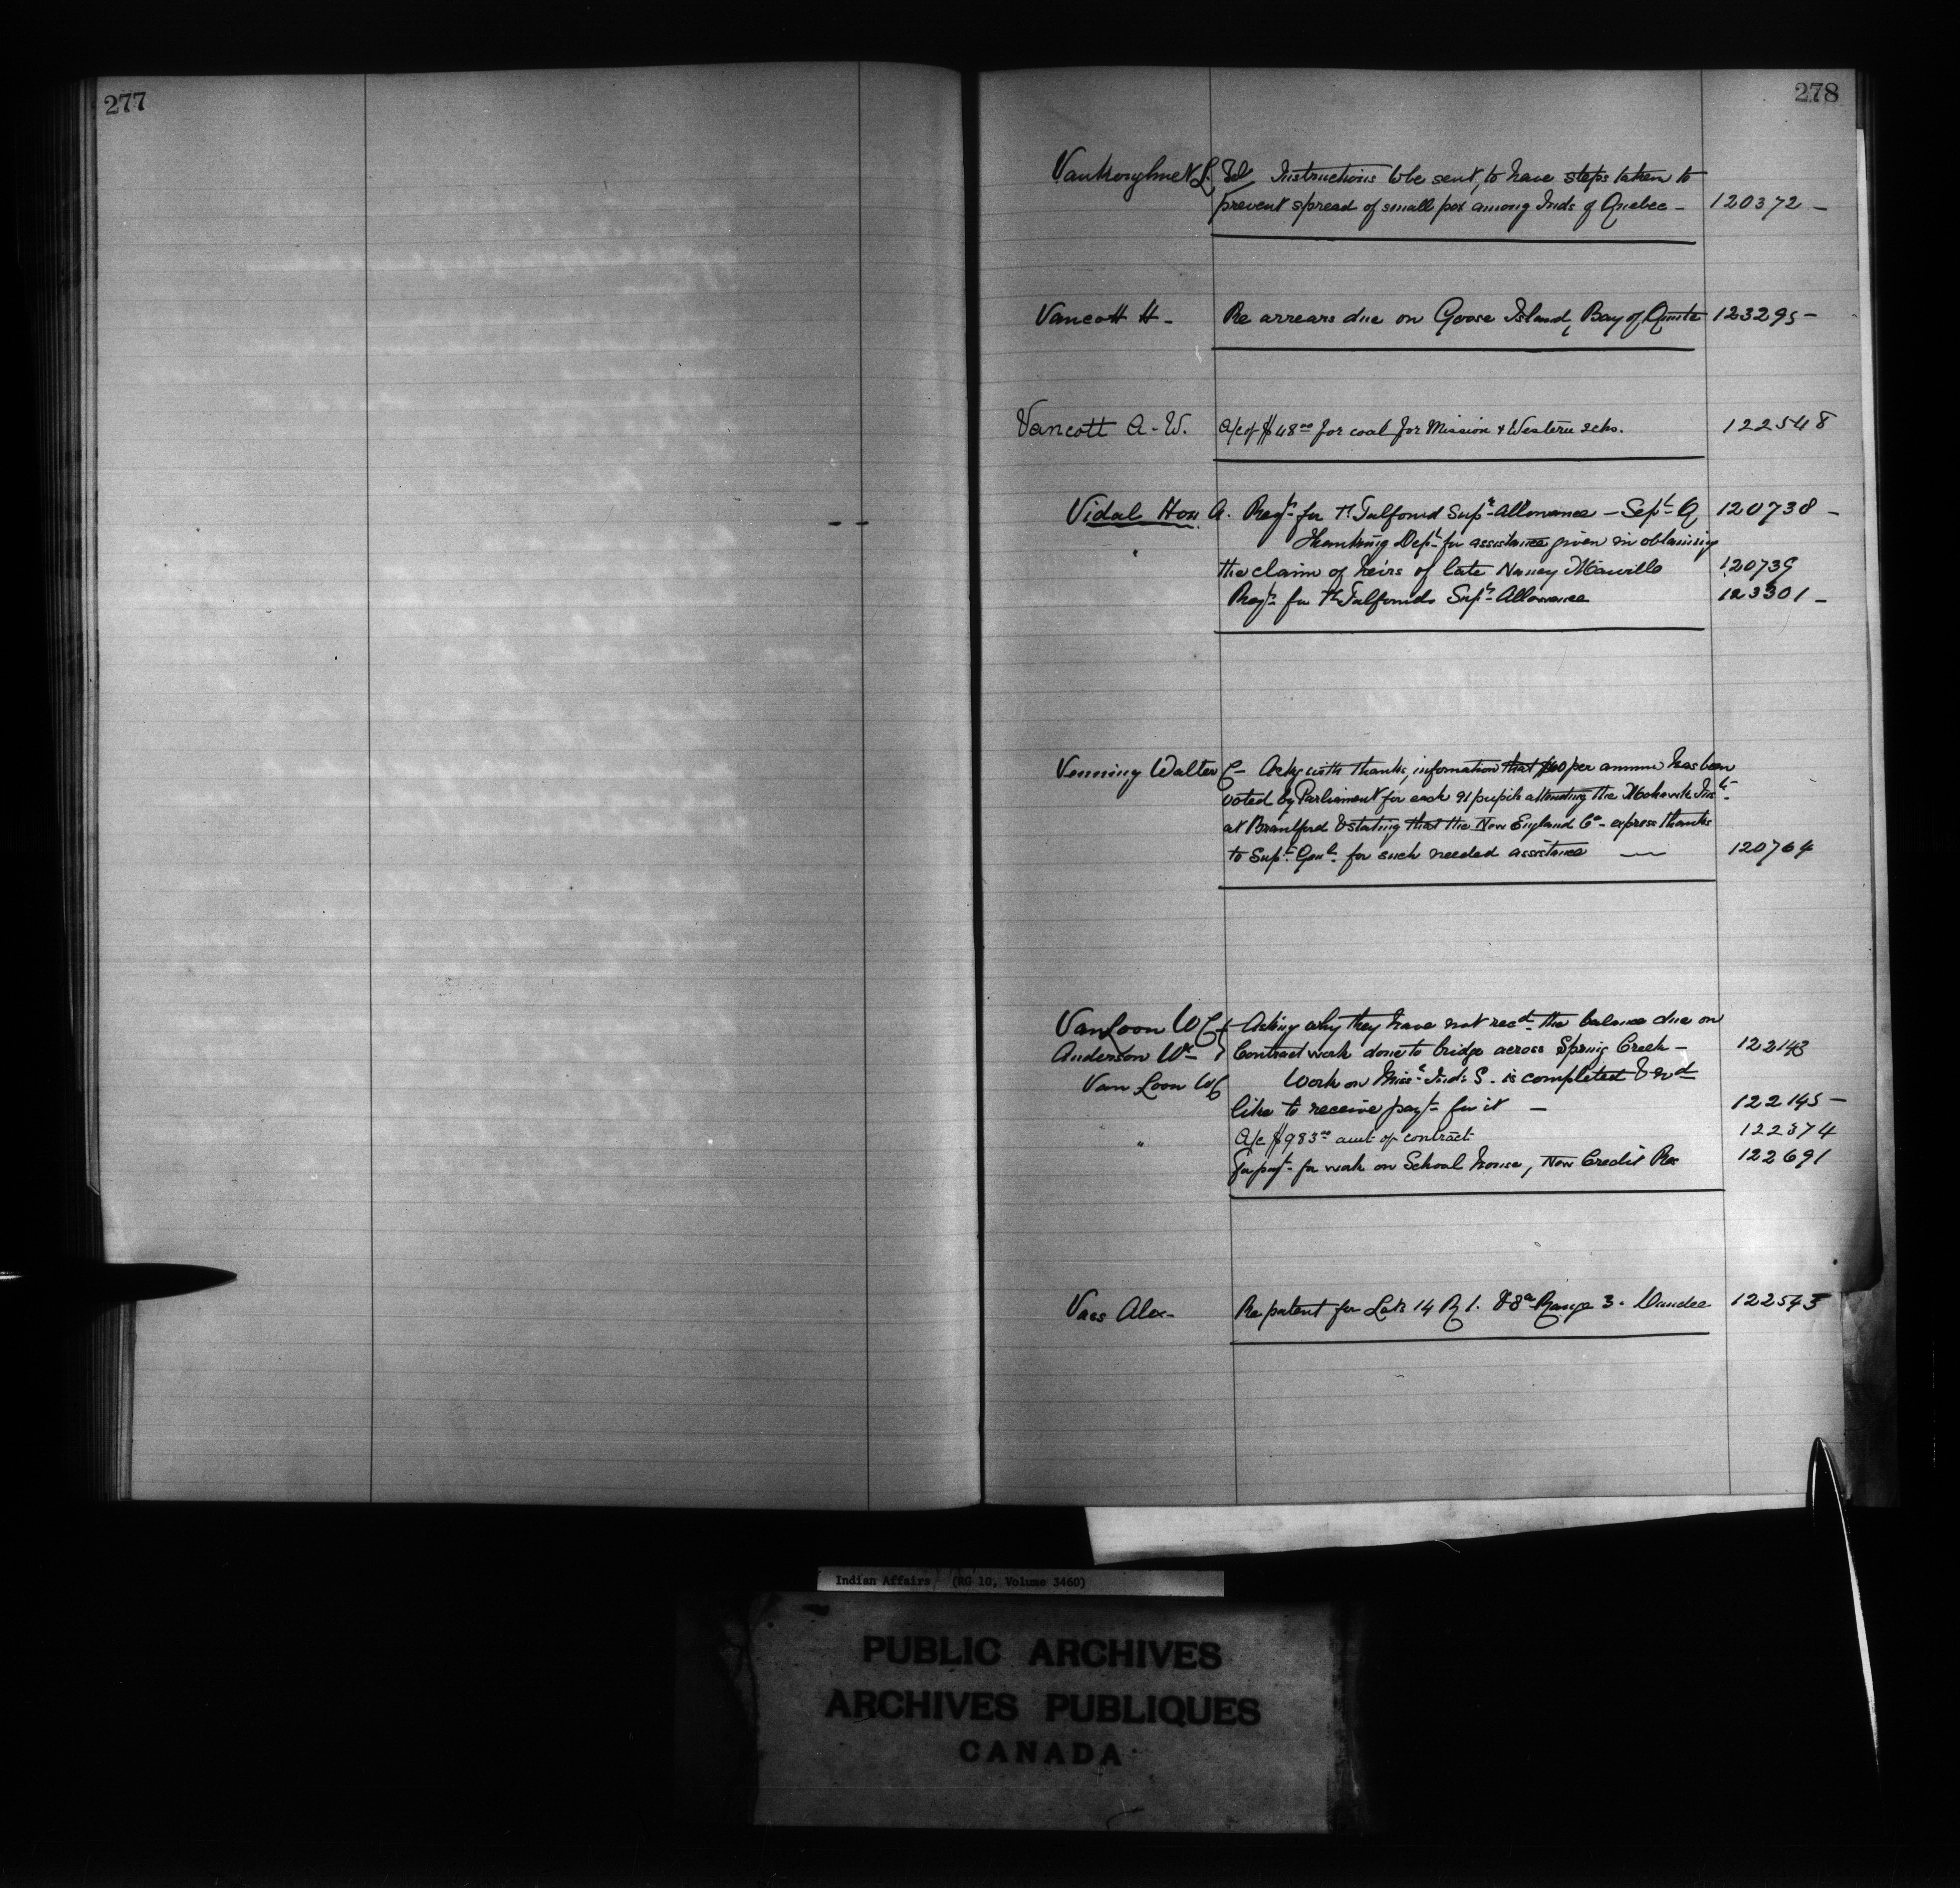 277
278
Vankoughnet L. Tel. Instructions to be sent, to have steps taken to
prevent spread of small pox among Inds of Quebec - 120372 -
Vancott H - Re arrears due on Goose Island, Bay of Quinte 123295 -
Vancott A. W. a/c of $48.00 for coal for Mission & Western schs. 122548
Vidal Hon. A. Reqt. for Talfourd Supn. Allowance - Sept. Q 120738 -
Thanking Dept. for assistance given in obtaining
the claim of heirs of late Nancy 120739
Reqt. for Talfourds Supn. Allowance 123301 -
Venning Walter C - Ackg with thanks, information that $60 per annum has been
voted by Parliament for each 91 pupils attending the Mohawk Inst.
at Brantford & stating that the New England Co - express thanks
to Supt. Genl. for such needed assistance — 120764
Van Loon W C & Asking why they have not recd. the balance due on
Anderson Wm } Contract work done to bridge across Spring Creek - 122143
Van Loon W C Work on Missa. Inds S. is completed & wd
like to receive payt. for it - 122145 -
" A/c $983.00 amt of contract 122374
For payt. for work on School house, New Credit Res 122691
Vass Alex - Re patent for Lots 14 R 1. & 8a Range 3. Dundee 122543
Indian Affairs (RG 10, Volume 3460)
PUBLIC ARCHIVES
ARCHIVES PUBLIQUES
CANADA